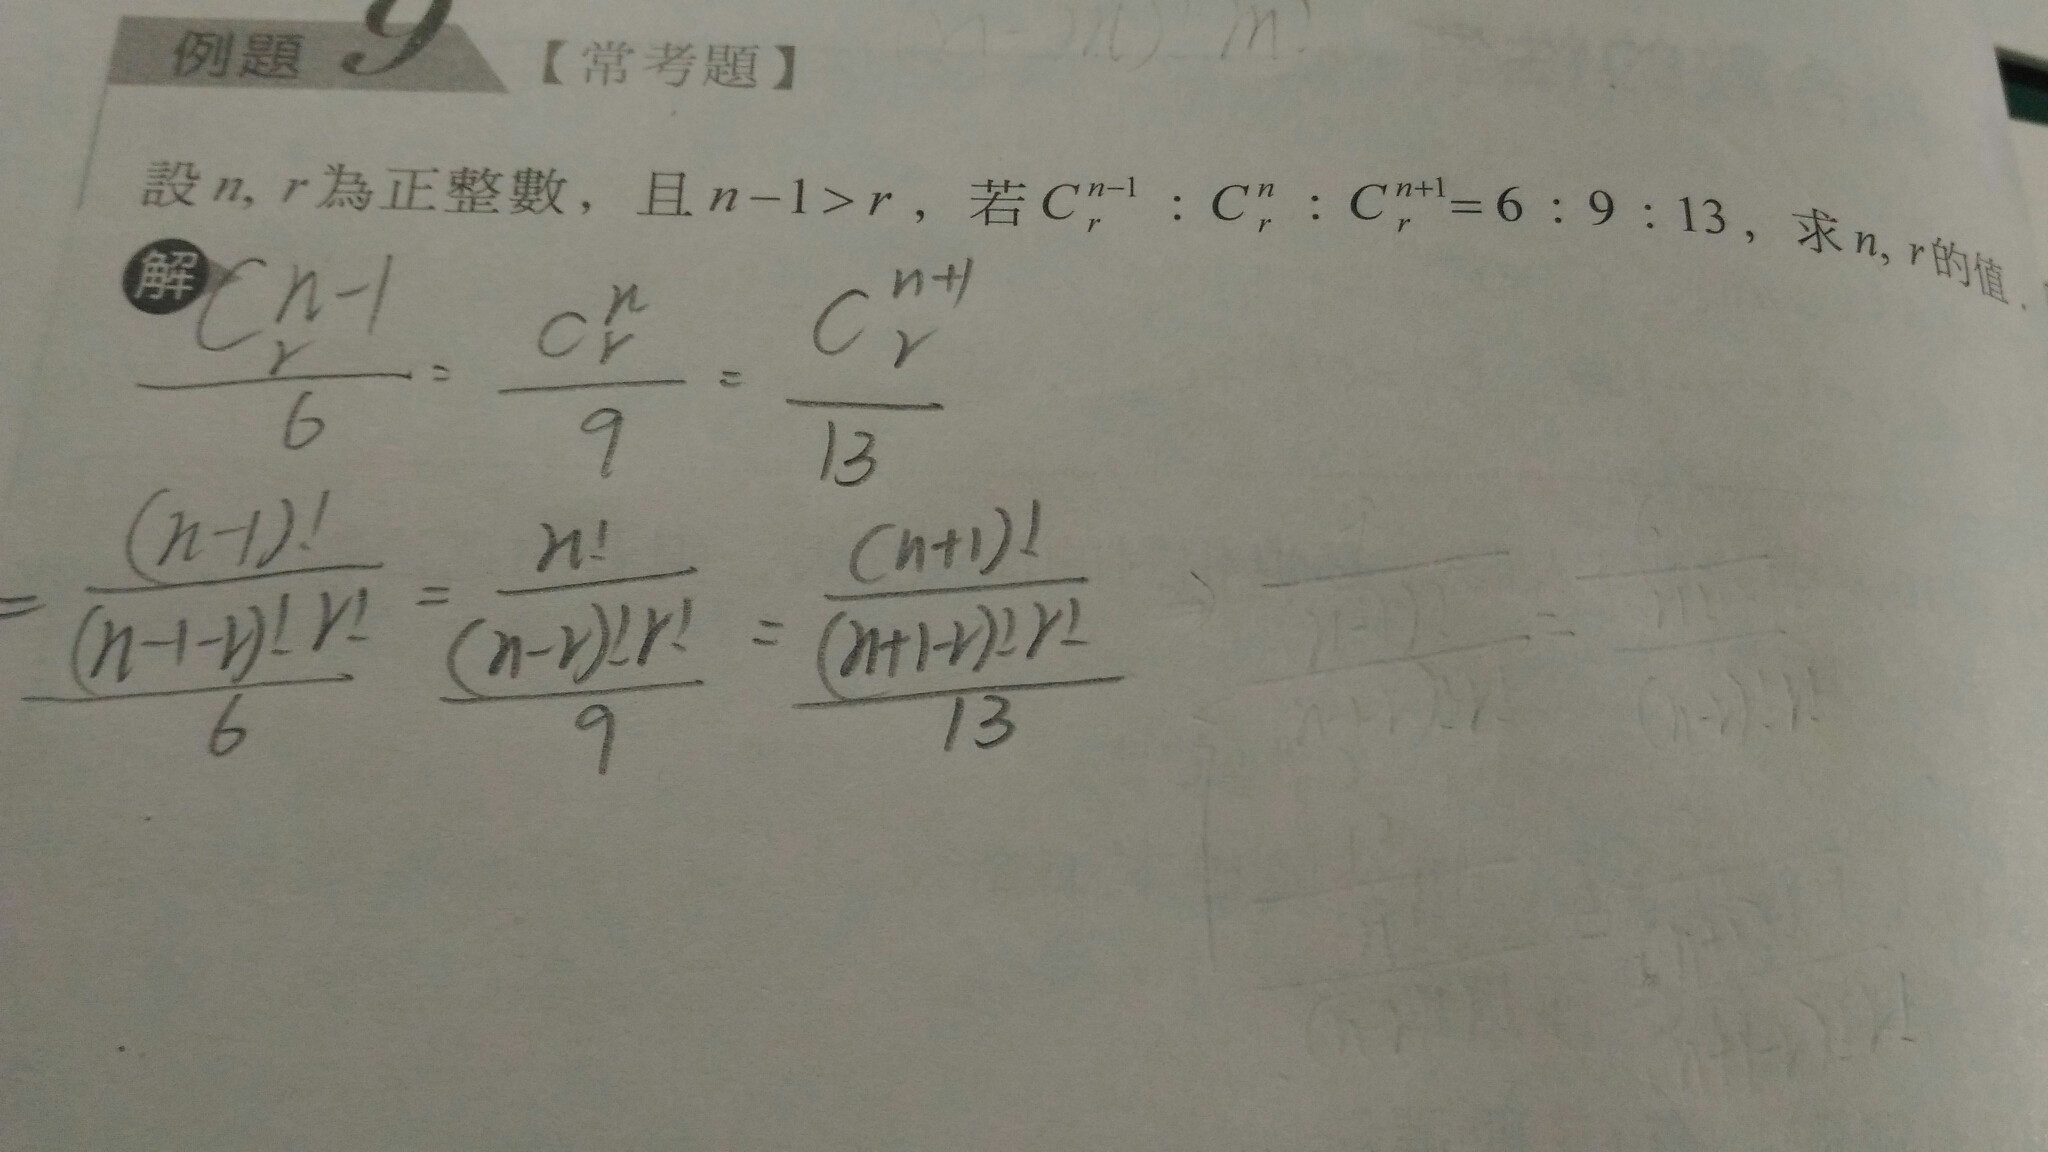 例題 9 【常考題】
設 n, r 為正整數，且 n−1＞r，若 C_r^{n−1} : C_r^n : C_r^{n+1} = 6 : 9 : 13，求 n, r 的值．
解 \frac{C_r^{n-1}}{6} = \frac{C_r^n}{9} = \frac{C_r^{n+1}}{13}
= \frac{\frac{(n-1)!}{(n-1-r)!r!}}{6} = \frac{\frac{n!}{(n-r)!r!}}{9} = \frac{\frac{(n+1)!}{(n+1-r)!r!}}{13}